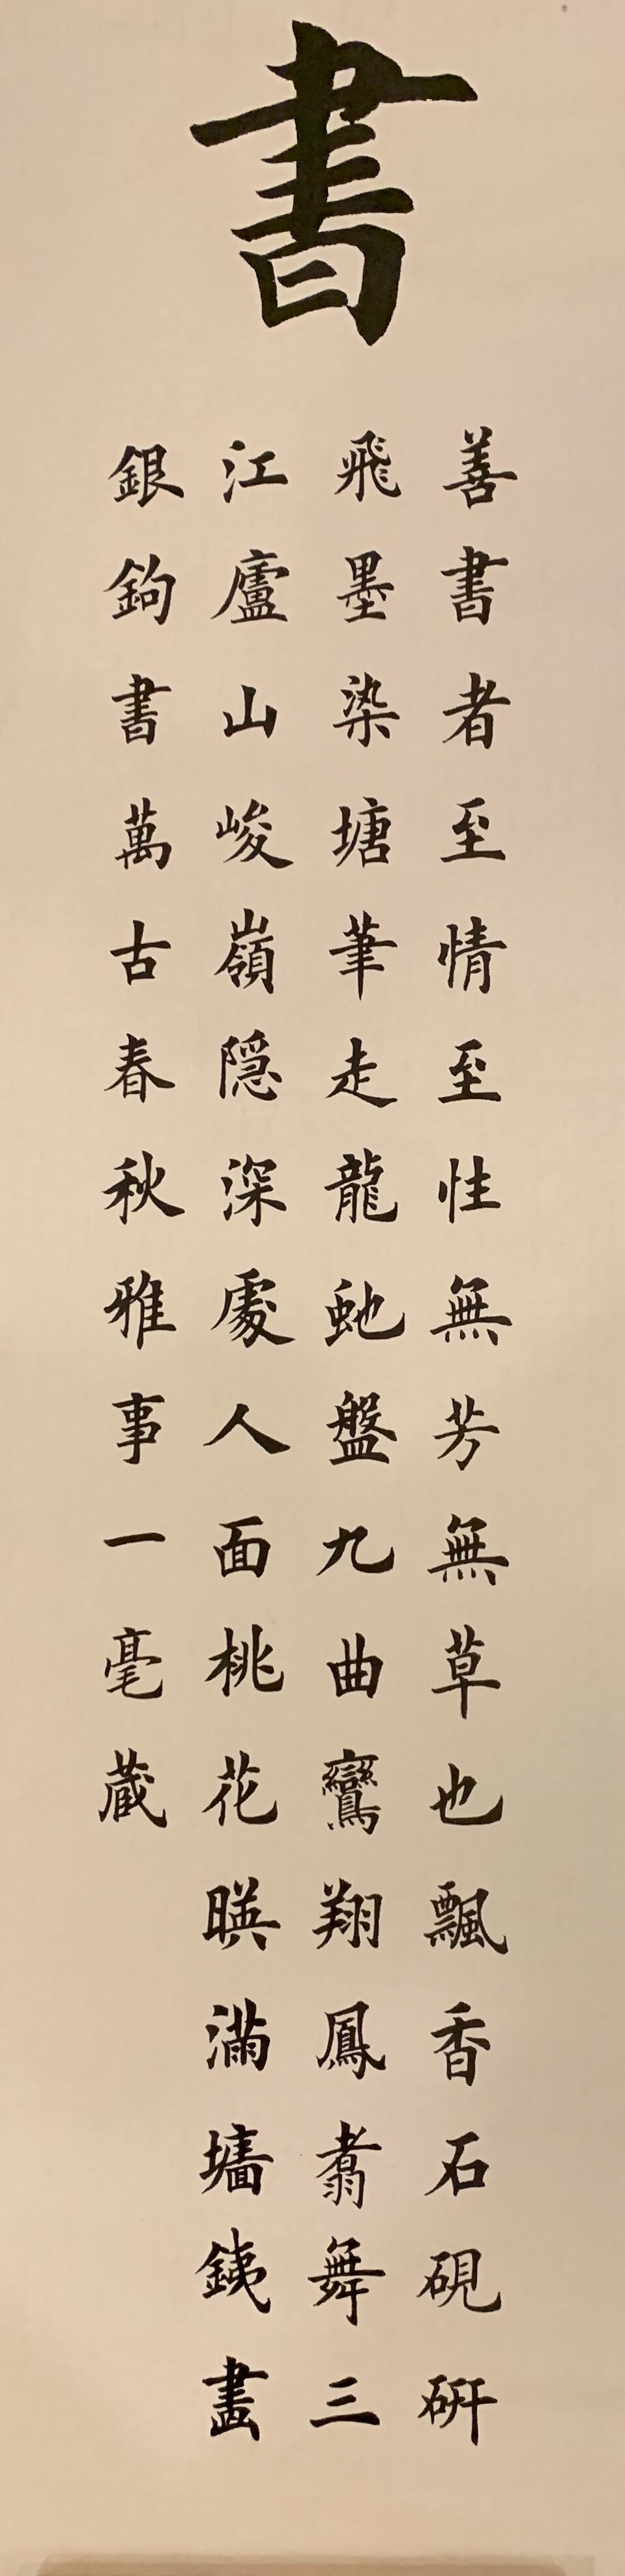 書
善書者至情至性無芳無草也飄香石硯硏
飛墨染塘筆走龍虵盤九曲鸞翔鳳翥舞三
江廬山峻嶺隠深處人面桃花暎滿墻銕畫
銀鉤書萬古春秋雅事一毫蔵